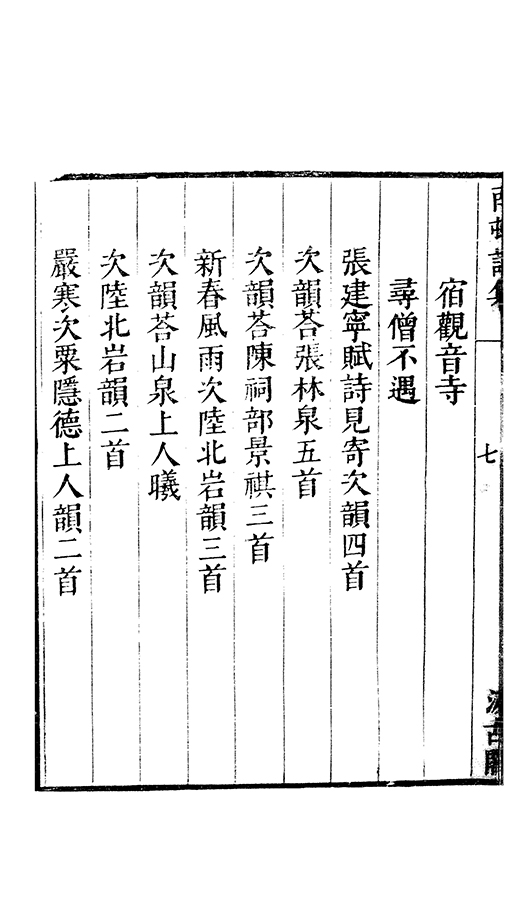 宿觀音寺
尋僧不遇
張建寧賦詩見寄次韻四首
次韻荅張林泉五首
次韻荅陳祠部景祺三首
新春風雨次陸北岩韻三首
次韻荅山泉上人曦
次陸北岩韻二首
嚴寒次粟隱德上人韻二首
七